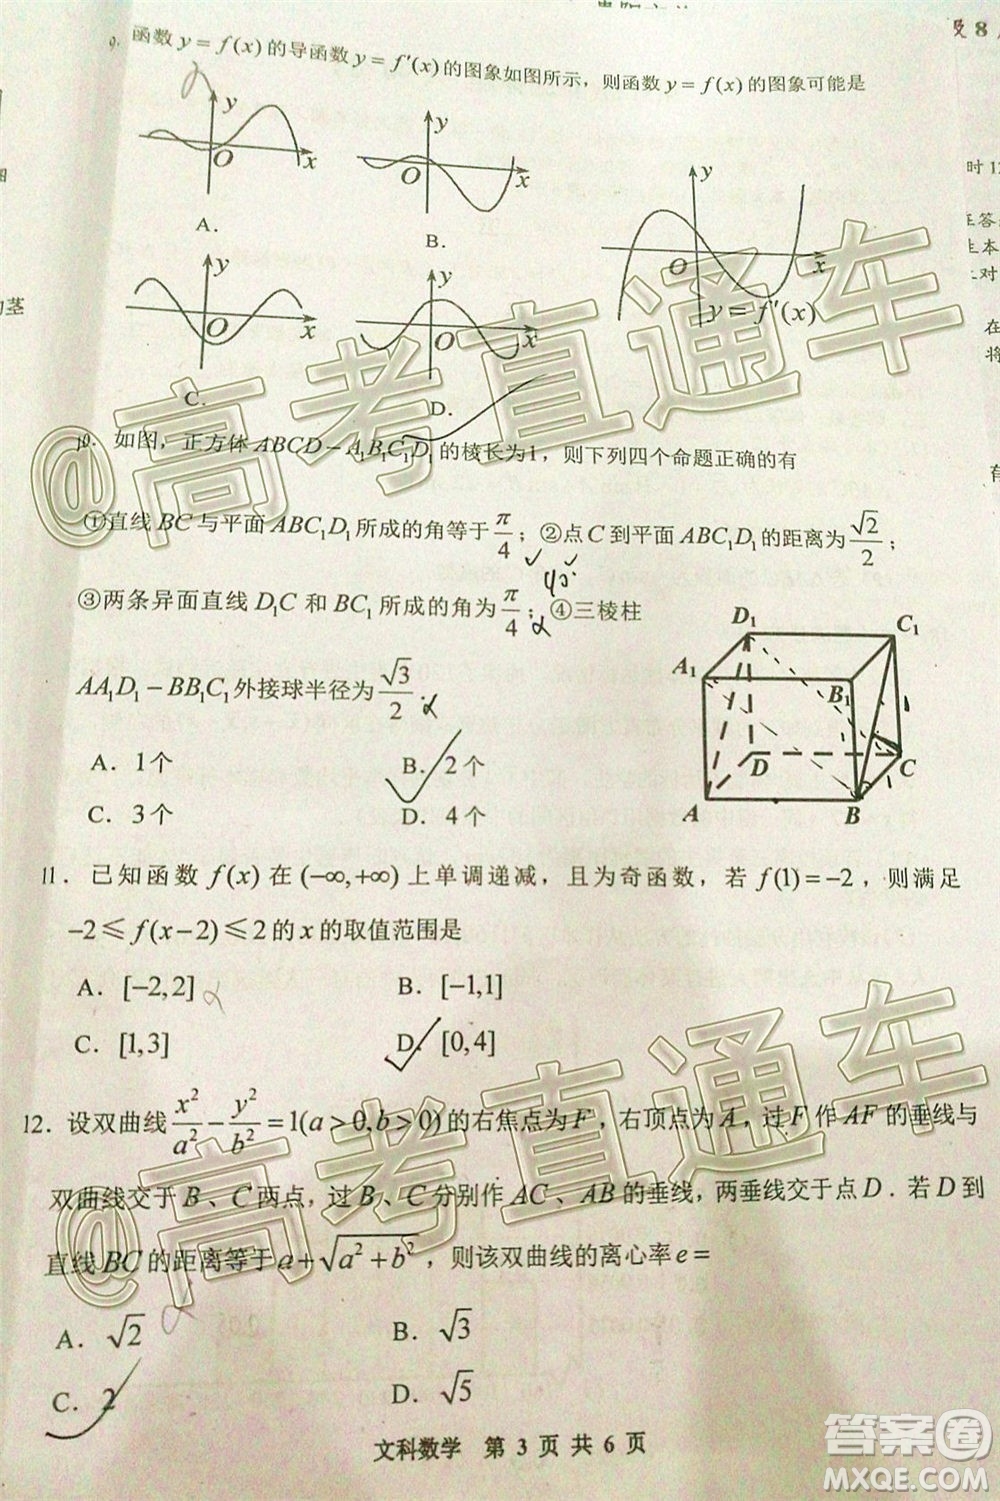 及 8
9. 函数 y = f(x) 的导函数 y = f′(x) 的图象如图所示，则函数 y = f(x) 的图象可能是
y
O
x
A.
y
O
x
B.
y
O
x
y = f′(x)
y
O
x
C.
y
O
x
D.
10. 如图，正方体 ABCD − A₁B₁C₁D₁ 的棱长为1，则下列四个命题正确的有
①直线 BC 与平面 ABC₁D₁ 所成的角等于 π/4；②点 C 到平面 ABC₁D₁ 的距离为 √2/2；
45°
③两条异面直线 D₁C 和 BC₁ 所成的角为 π/4；④三棱柱
AA₁D₁ − BB₁C₁ 外接球半径为 √3/2.
A. 1个
B. 2个
C. 3个
D. 4个
D₁
C₁
A₁
B₁
D
C
A
B
11. 已知函数 f(x) 在 (−∞,+∞) 上单调递减，且为奇函数，若 f(1) = −2，则满足
−2 ≤ f(x−2) ≤ 2 的 x 的取值范围是
A. [−2,2]
B. [−1,1]
C. [1,3]
D. [0,4]
12. 设双曲线 x²/a² − y²/b² = 1(a>0,b>0) 的右焦点为 F，右顶点为 A，过 F 作 AF 的垂线与
双曲线交于 B、C 两点，过 B、C 分别作 AC、AB 的垂线，两垂线交于点 D．若 D 到
直线 BC 的距离等于 a+√(a²+b²)，则该双曲线的离心率 e =
A. √2
B. √3
C. 2
D. √5
文科数学 第 3 页 共 6 页
@高考直通车
@高考直通车
答案圈
MXQE.COM
的茎
时 1
在
将